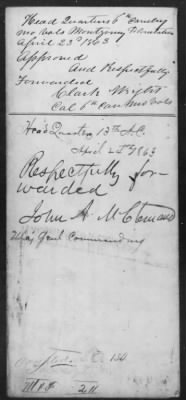 Head Quarters 6th Cavalry
Mo Vols Montgomery Plantation
April 23d 1863
Approved
And Respectfully
Forwarded
Clark Wright
Col 6th Cav Mo Vols
Head Quarters 13th A.C.
April 25th 1863
Respectfully for-
warded
John A McClernand
Maj Genl Commanding